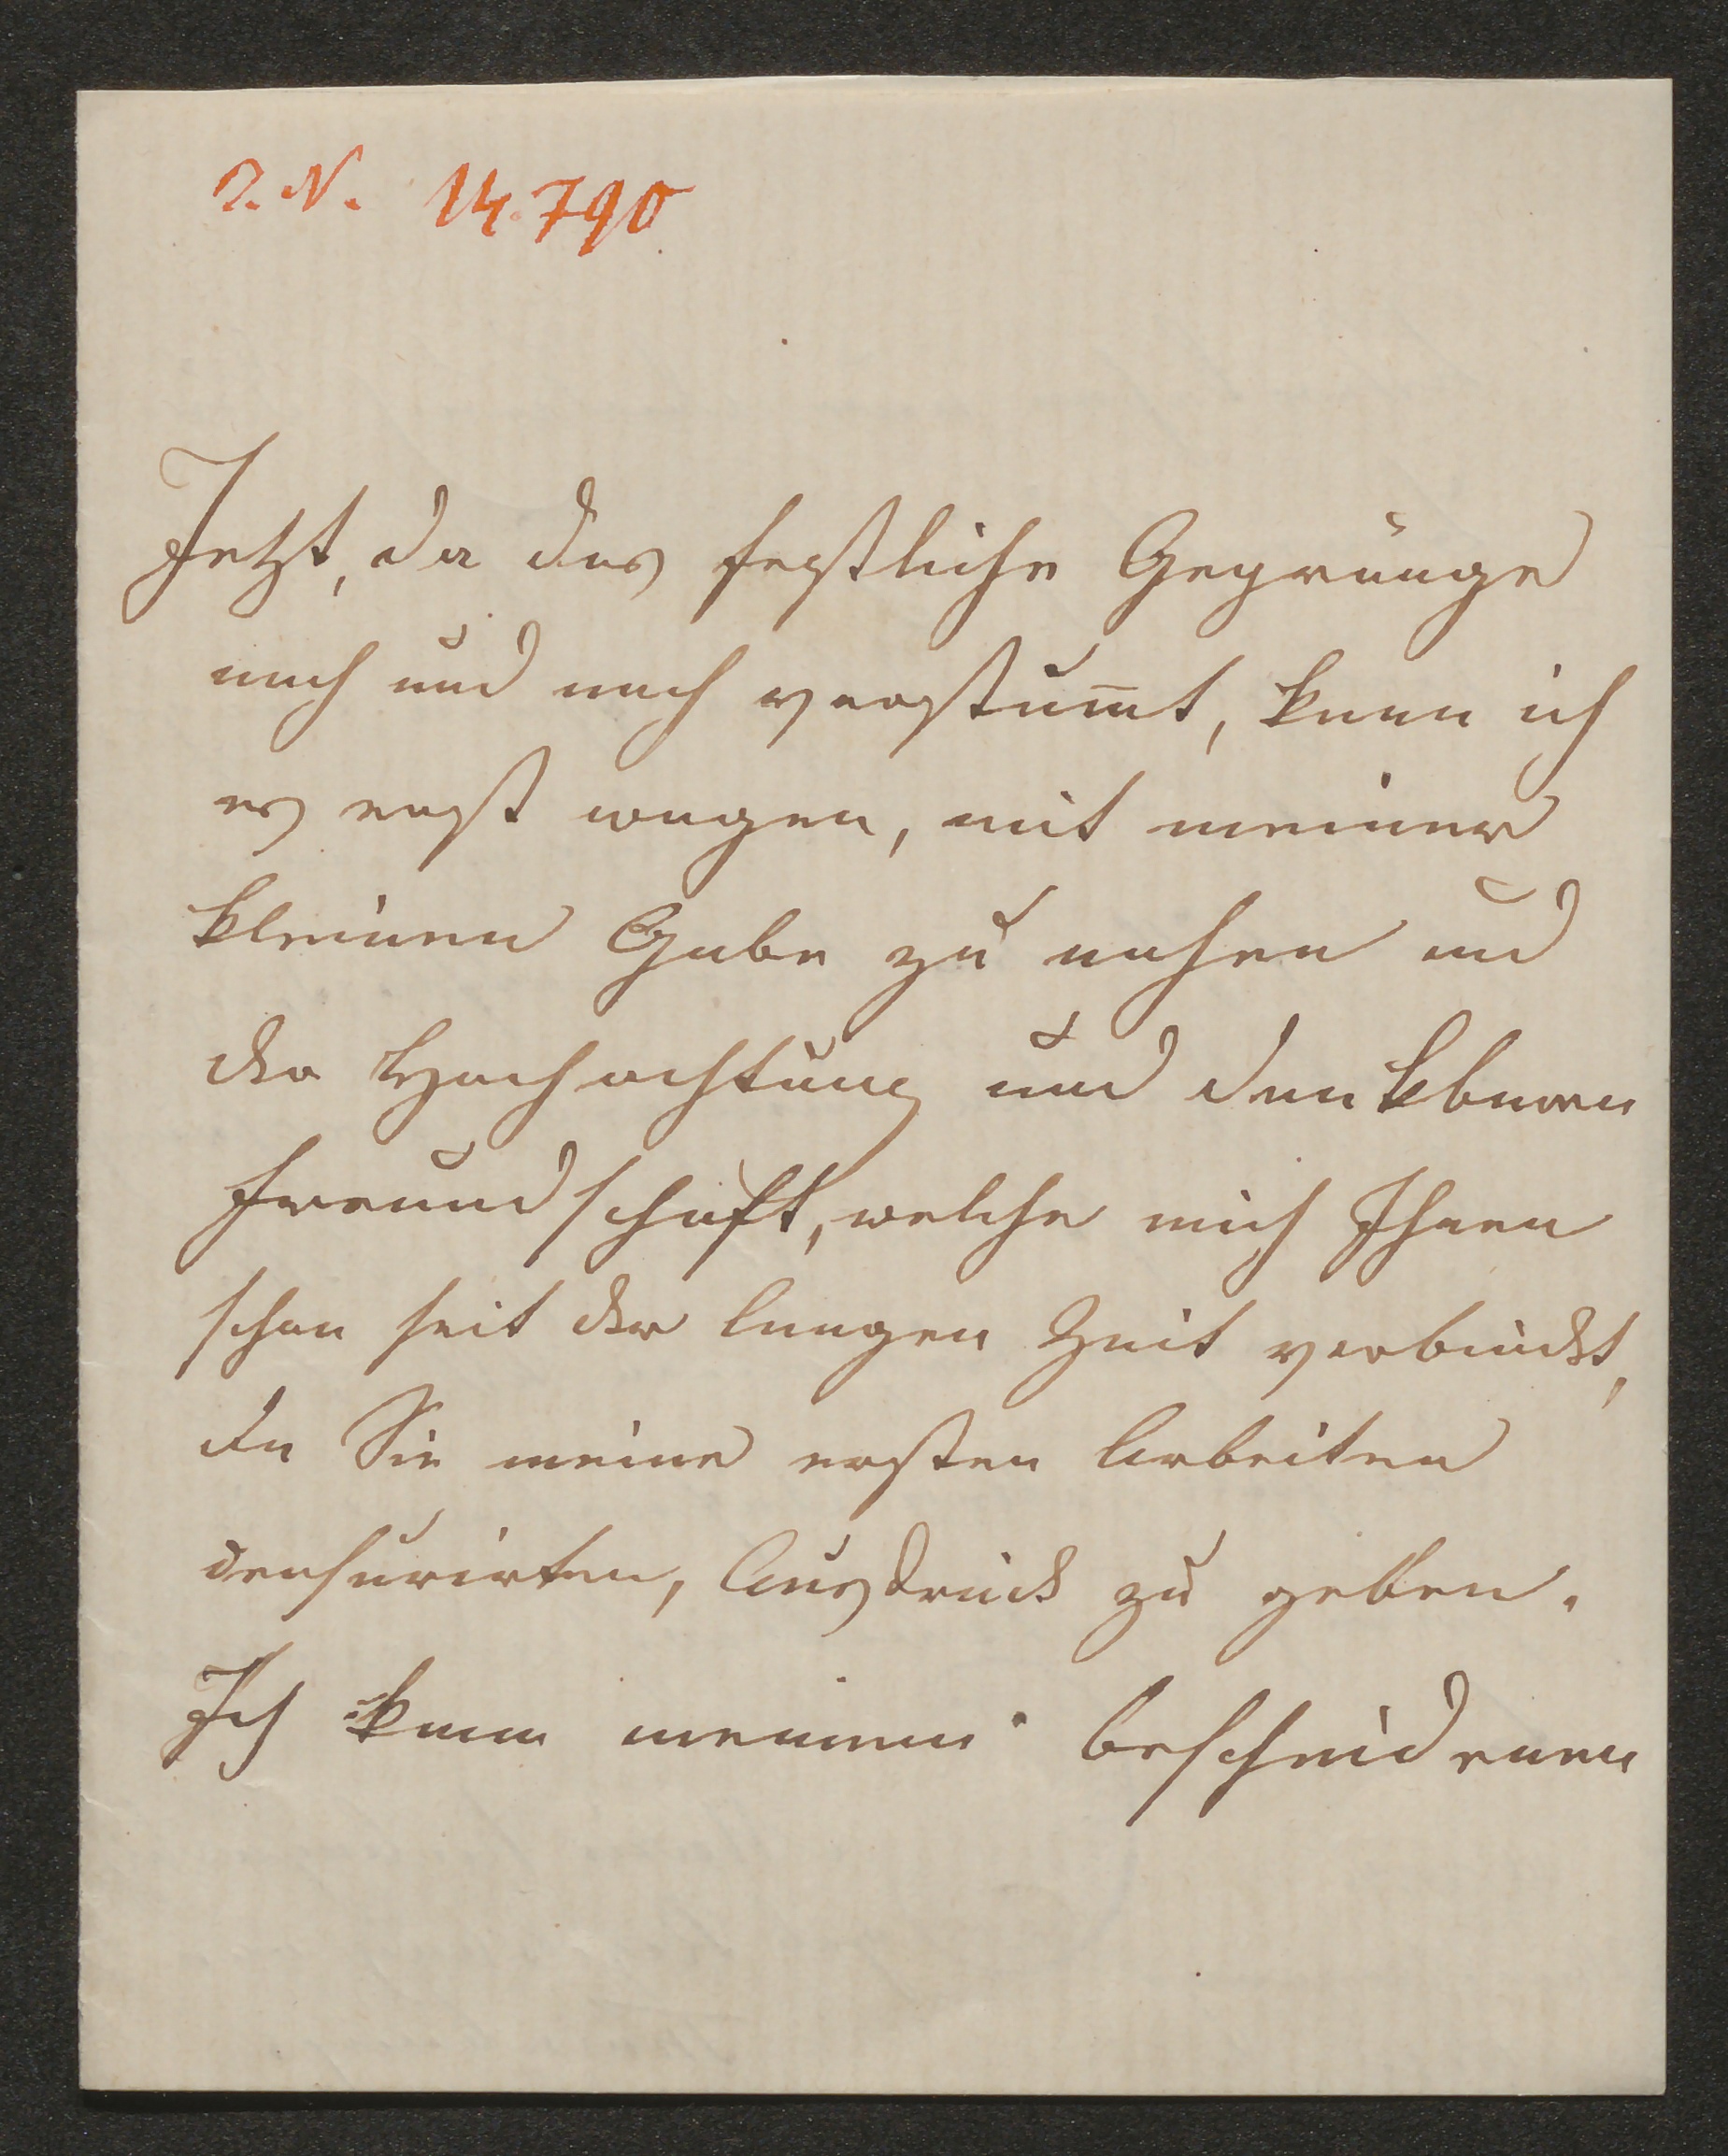 I. N. 14.790
Jetzt, da das festliche Gepränge
nach und nach verstum̅t, kann ich
es erst wagen, mit meiner
kleinen Gabe zu nahen und
der Hochachtung und dankbaren
Freundschaft, welche mich Ihnen
schon seit der langen Zeit verbindet,
da Sie meine ersten Arbeiten
censurirten, Ausdruck zu geben.
Ich kann meinen bescheidenen